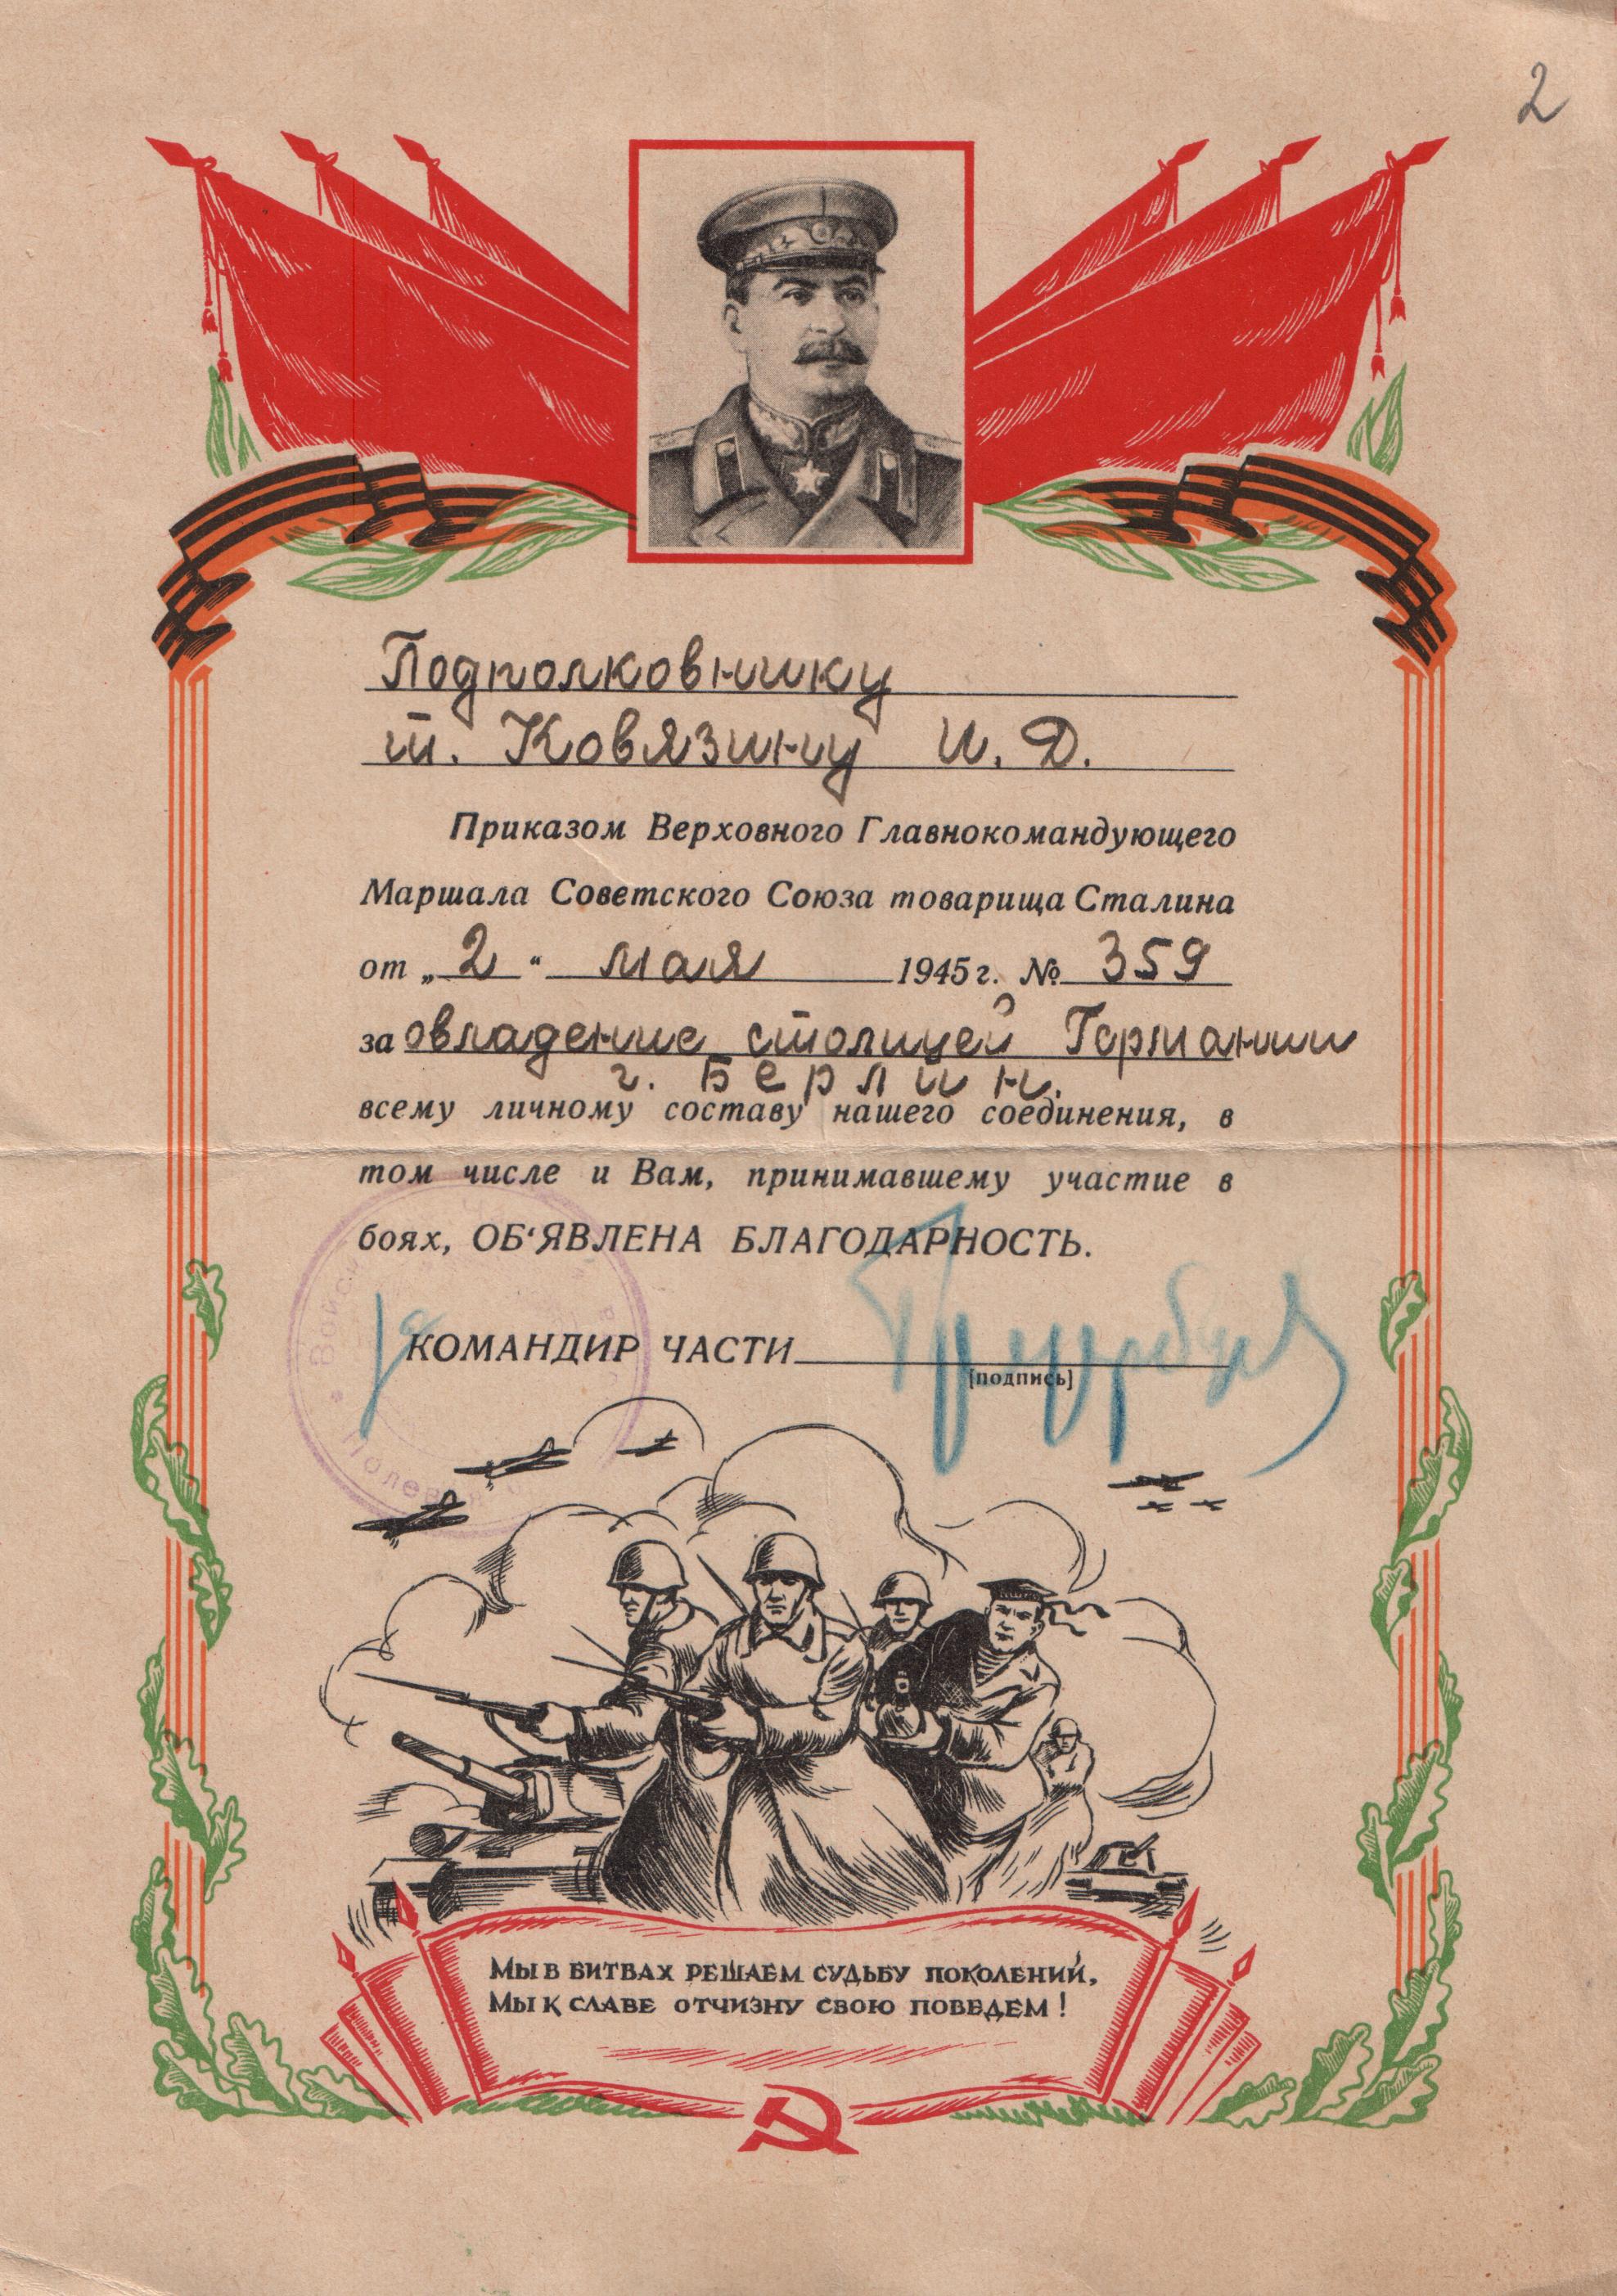 2
Подполковнику
т. Ковязину И. Д.
Приказом Верховного Главнокомандующего
Маршала Советского Союза товарища Сталина
от „2“ мая 1945 г. № 359
за овладение столицей Германии
г. Берлин.
всему личному составу нашего соединения, в
том числе и Вам, принимавшему участие в
боях, ОБ‘ЯВЛЕНА БЛАГОДАРНОСТЬ.
КОМАНДИР ЧАСТИ
[подпись]
МЫ В БИТВАХ РЕШАЕМ СУДЬБУ ПОКОЛЕНИЙ,
МЫ К СЛАВЕ ОТЧИЗНУ СВОЮ ПОВЕДЕМ!